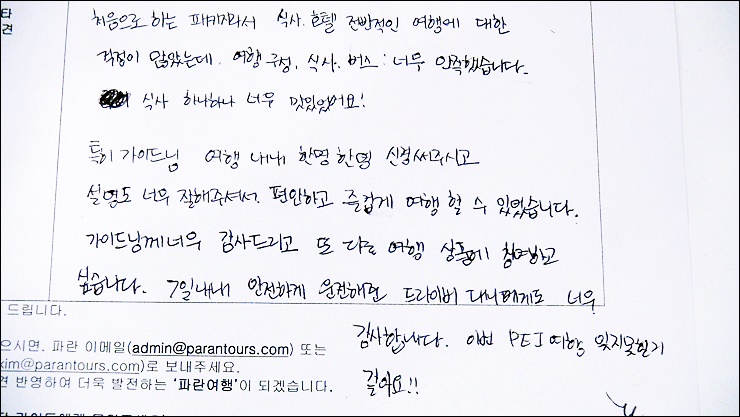 타
견
처음으로 하는 패키지라서 식사. 호텔 전반적인 여행에 대한
걱정이 많았는데. 여행 구성, 식사. 버스 : 너무 만족했습니다.
식사 하나하나 너무 맛있었어요!
특히 가이드님 여행 내내 한명 한명 신경써주시고
설명도 너무 잘해주셔서. 편안하고 즐겁게 여행 할 수 있었습니다.
가이드님께 너무 감사드리고 또 다른 여행 상품에 참여하고
싶습니다. 7일내내 안전하게 운전해준 드라이버 다니에게도 너무
감사합니다. 이번 PEI 여행 잊지못할거
같아요!!
드립니다.
으시면. 파란 이메일(admin@parantours.com) 또는
kim@parantours.com)로 보내주세요.
견 반영하여 더욱 발전하는 '파란여행'이 되겠습니다.